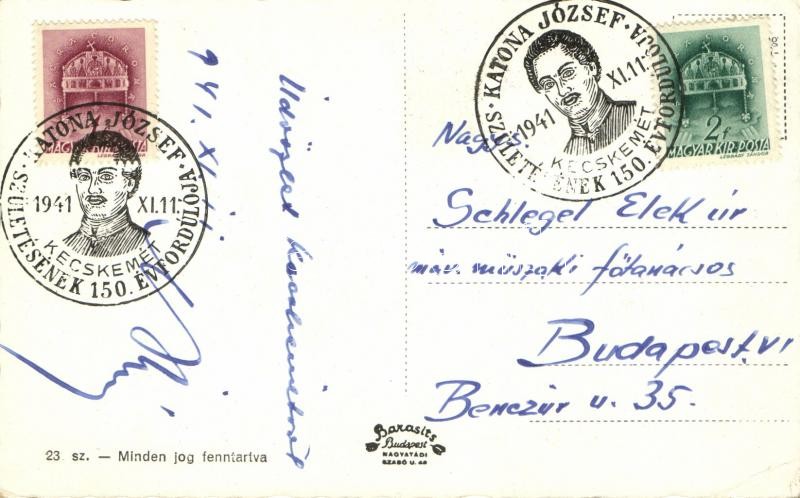 SZENT KORONA
MAGYAR KIR. POSTA
LÉGRÁDY SÁNDOR
KATONA JÓZSEF · SZÜLETÉSÉNEK 150. ÉVFORDULÓJA ·
1941 XI.11.
KECSKEMÉT
941. XI. 11.
Üdvözlet Kecskemétről
23 sz. — Minden jog fenntartva
KATONA JÓZSEF · SZÜLETÉSÉNEK 150. ÉVFORDULÓJA ·
1941 XI.11.
KECSKEMÉT
2f
MAGYAR KIR. POSTA
LÉGRÁDY SÁNDOR
Nagys.
Schlegel Elek úr
máv. műszaki főtanácsos
Budapest. VI
Benczúr u. 35.
Barasits
Budapest
NAGYATÁDI
SZABÓ U. 48